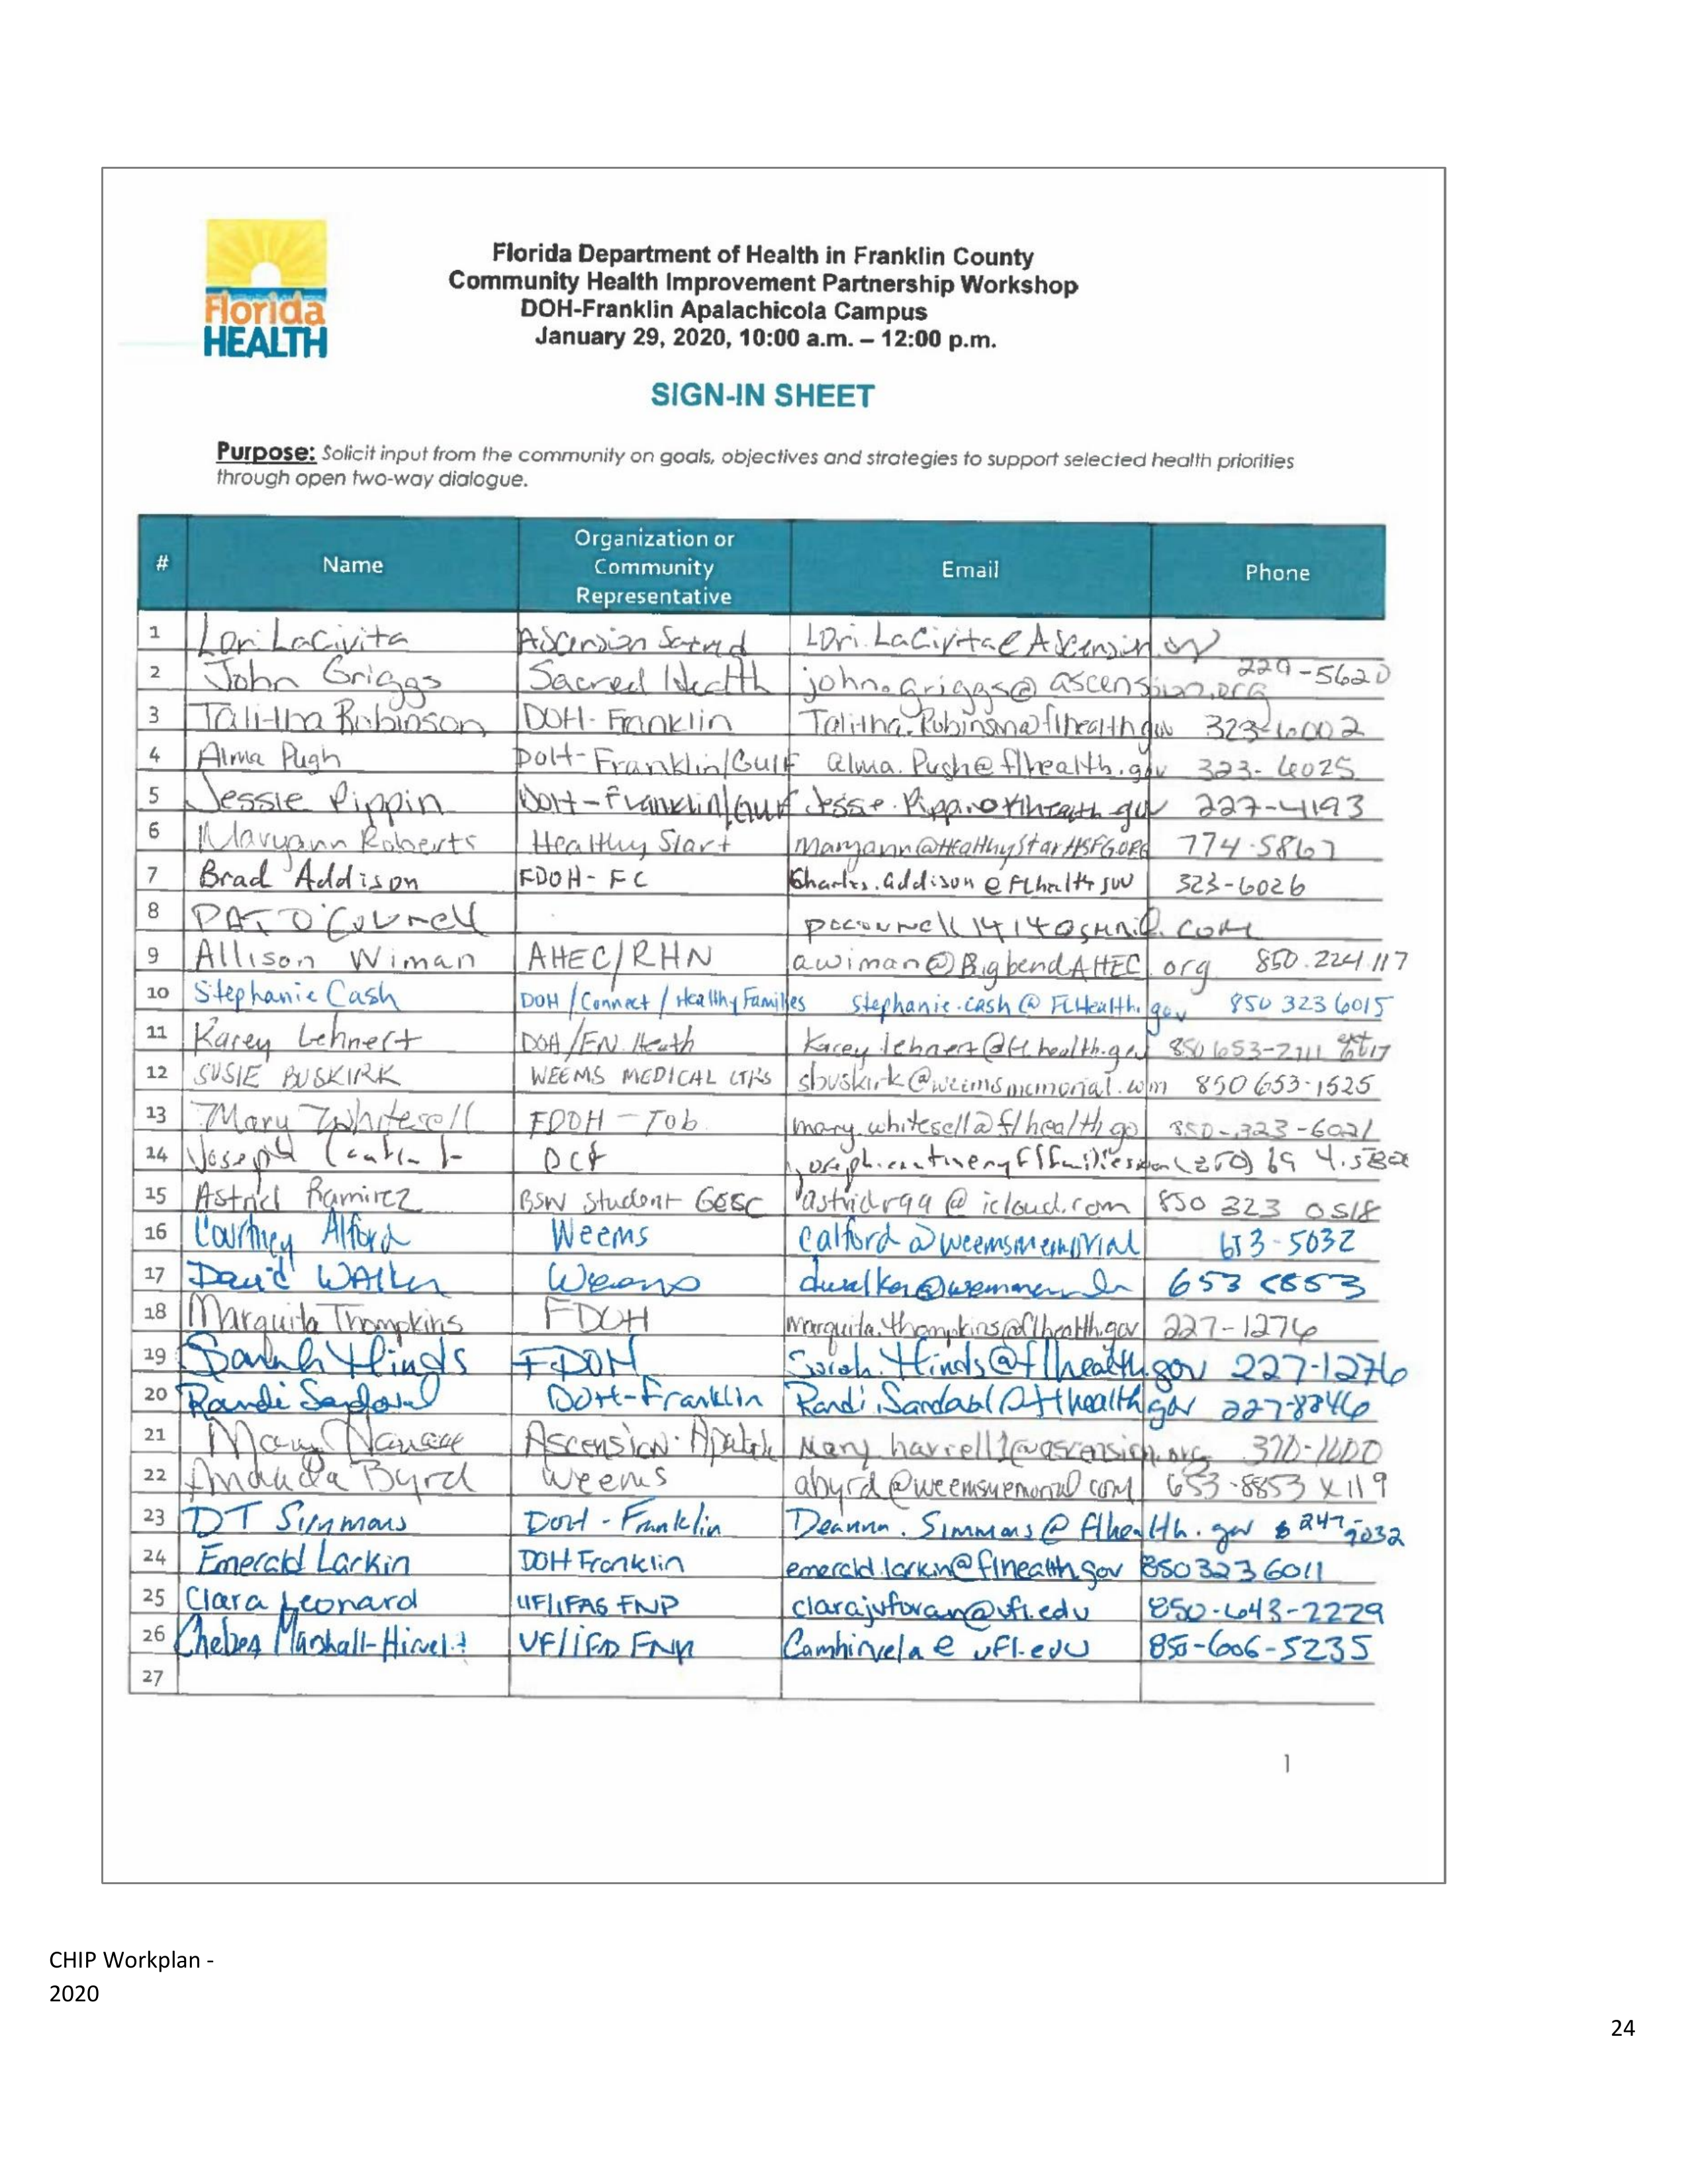 Florida
HEALTH
Florida Department of Health in Franklin County
Community Health Improvement Partnership Workshop
DOH-Franklin Apalachicola Campus
January 29, 2020, 10:00 a.m. – 12:00 p.m.
SIGN-IN SHEET
Purpose: Solicit input from the community on goals, objectives and strategies to support selected health priorities
through open two-way dialogue.
# Name Organization or Community Representative Email Phone
1 Lori LaCivita Ascension Sacred Lori.LaCivita@Ascension.org
2 John Griggs Sacred Health john.griggs@ascension.org 229-5620
3 Talitha Robinson DOH-Franklin Talitha.Robinson@flhealth.gov 323-6002
4 Alma Pugh DOH-Franklin/Gulf alma.Pugh@flhealth.gov 323-6025
5 Jessie Pippin DOH-Franklin/Gulf 227-4193
6 Maryann Roberts Healthy Start 774-5867
7 Brad Addison FDOH-FC Charles.addison@flhealth 323-6026
8 PAT O'Connell
9 Allison Wiman AHEC/RHN awiman@BigbendAHEC.org 850.224.117
10 Stephanie Cash DOH/Connect/Healthy Families Stephanie.cash@FLHealth.gov 850 323 6015
11 Karey Lehnert DOH/EN.Heath Karey.lehnert@flhealth.gov 850 653-2111
12 SUSIE BUSKIRK WEEMS MEDICAL sbuskirk@weemsmemorial.com 850 653-1525
13 Mary Whitesell FDOH-Tob mary.whitesell@flhealth.go 850-323-6021
14 Joseph DCF
15 Astrid Ramirez BSW Student GCSC astridr99@icloud.com 850 323 0518
16 Courtney Alford Weems calford@weemsmemorial 653-5032
17 David Walker Weems 653 8853
18 Marquita Thompkins FDOH Marquita.thompkins@flhealth.gov 227-1276
19 Sarah Hinds FDOH Sarah.Hinds@flhealth.gov 227-1276
20 Randi Sandoval DOH-Franklin 227-8846
21 Mary Ascension 370-1600
22 Amanda Byrd Weems abyrd@weemsmemorial.com 653-8853 x119
23 DT Simmons DOH-Franklin Deanna.Simmons@flhealth.gov 247-9032
24 Emerald Larkin DOH Franklin emerald.larkin@flhealth.gov 850 323 6011
25 Clara Leonard UF/IFAS FNP clarajoforan@ufl.edu 850-643-2229
26 Chelsea UF/IFAS FNP 850-606-5235
27
1
CHIP Workplan -
2020
24